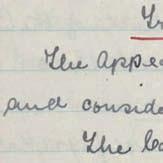 The appe
and conside
The